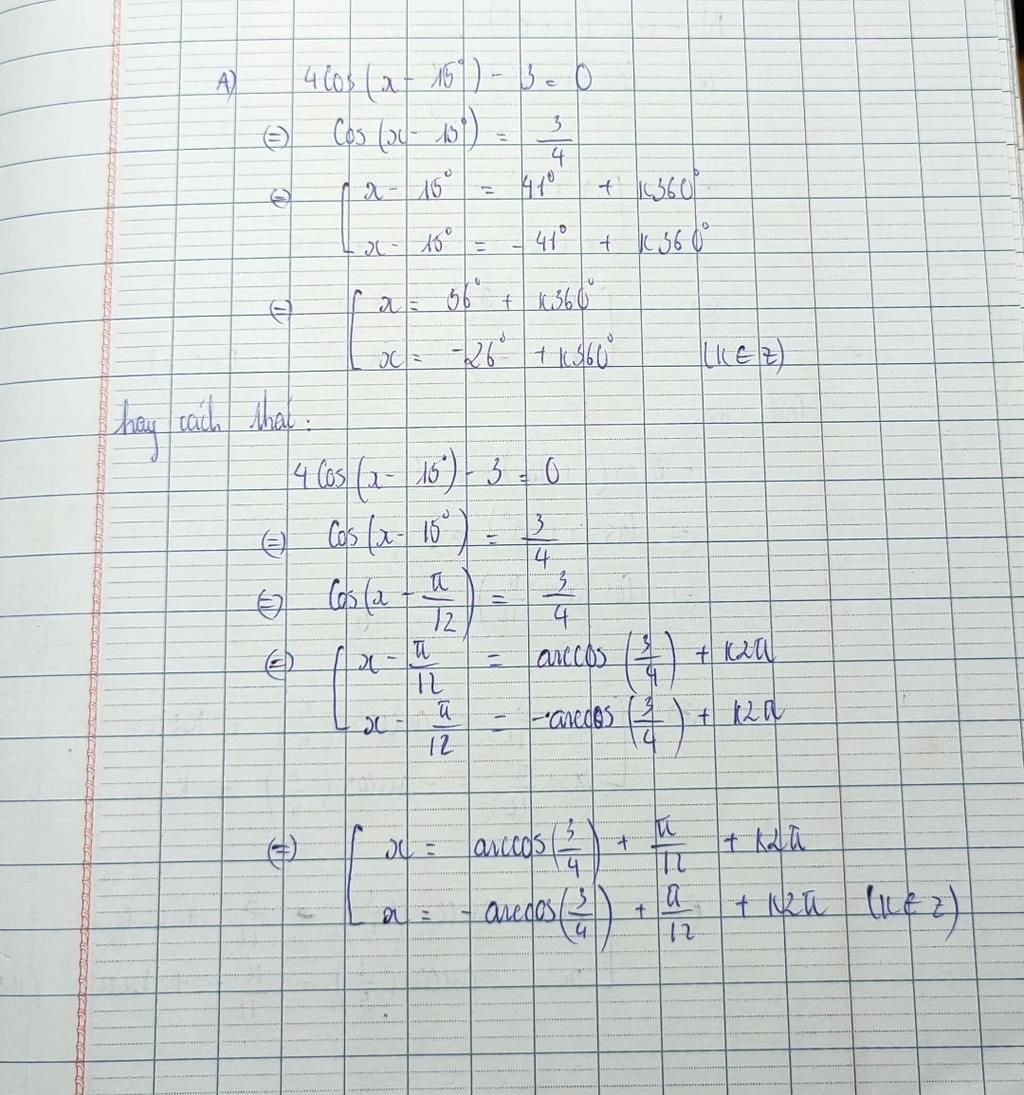 A) 4Cos(x - 15°) - 3 = 0
⇔ Cos(x - 15°) = 3/4
⇔ [ x - 15° = 41° + K360°
x - 15° = -41° + K360°
⇔ [ x = 56° + K360°
x = -26° + K360° (K ∈ Z)
hay cách khác:
4Cos(x - 15°) - 3 = 0
⇔ Cos(x - 15°) = 3/4
⇔ Cos(x - π/12) = 3/4
⇔ [ x - π/12 = arccos(3/4) + K2π
x - π/12 = -arccos(3/4) + K2π
⇔ [ x = arccos(3/4) + π/12 + K2π
x = -arccos(3/4) + π/12 + K2π (K ∈ Z)